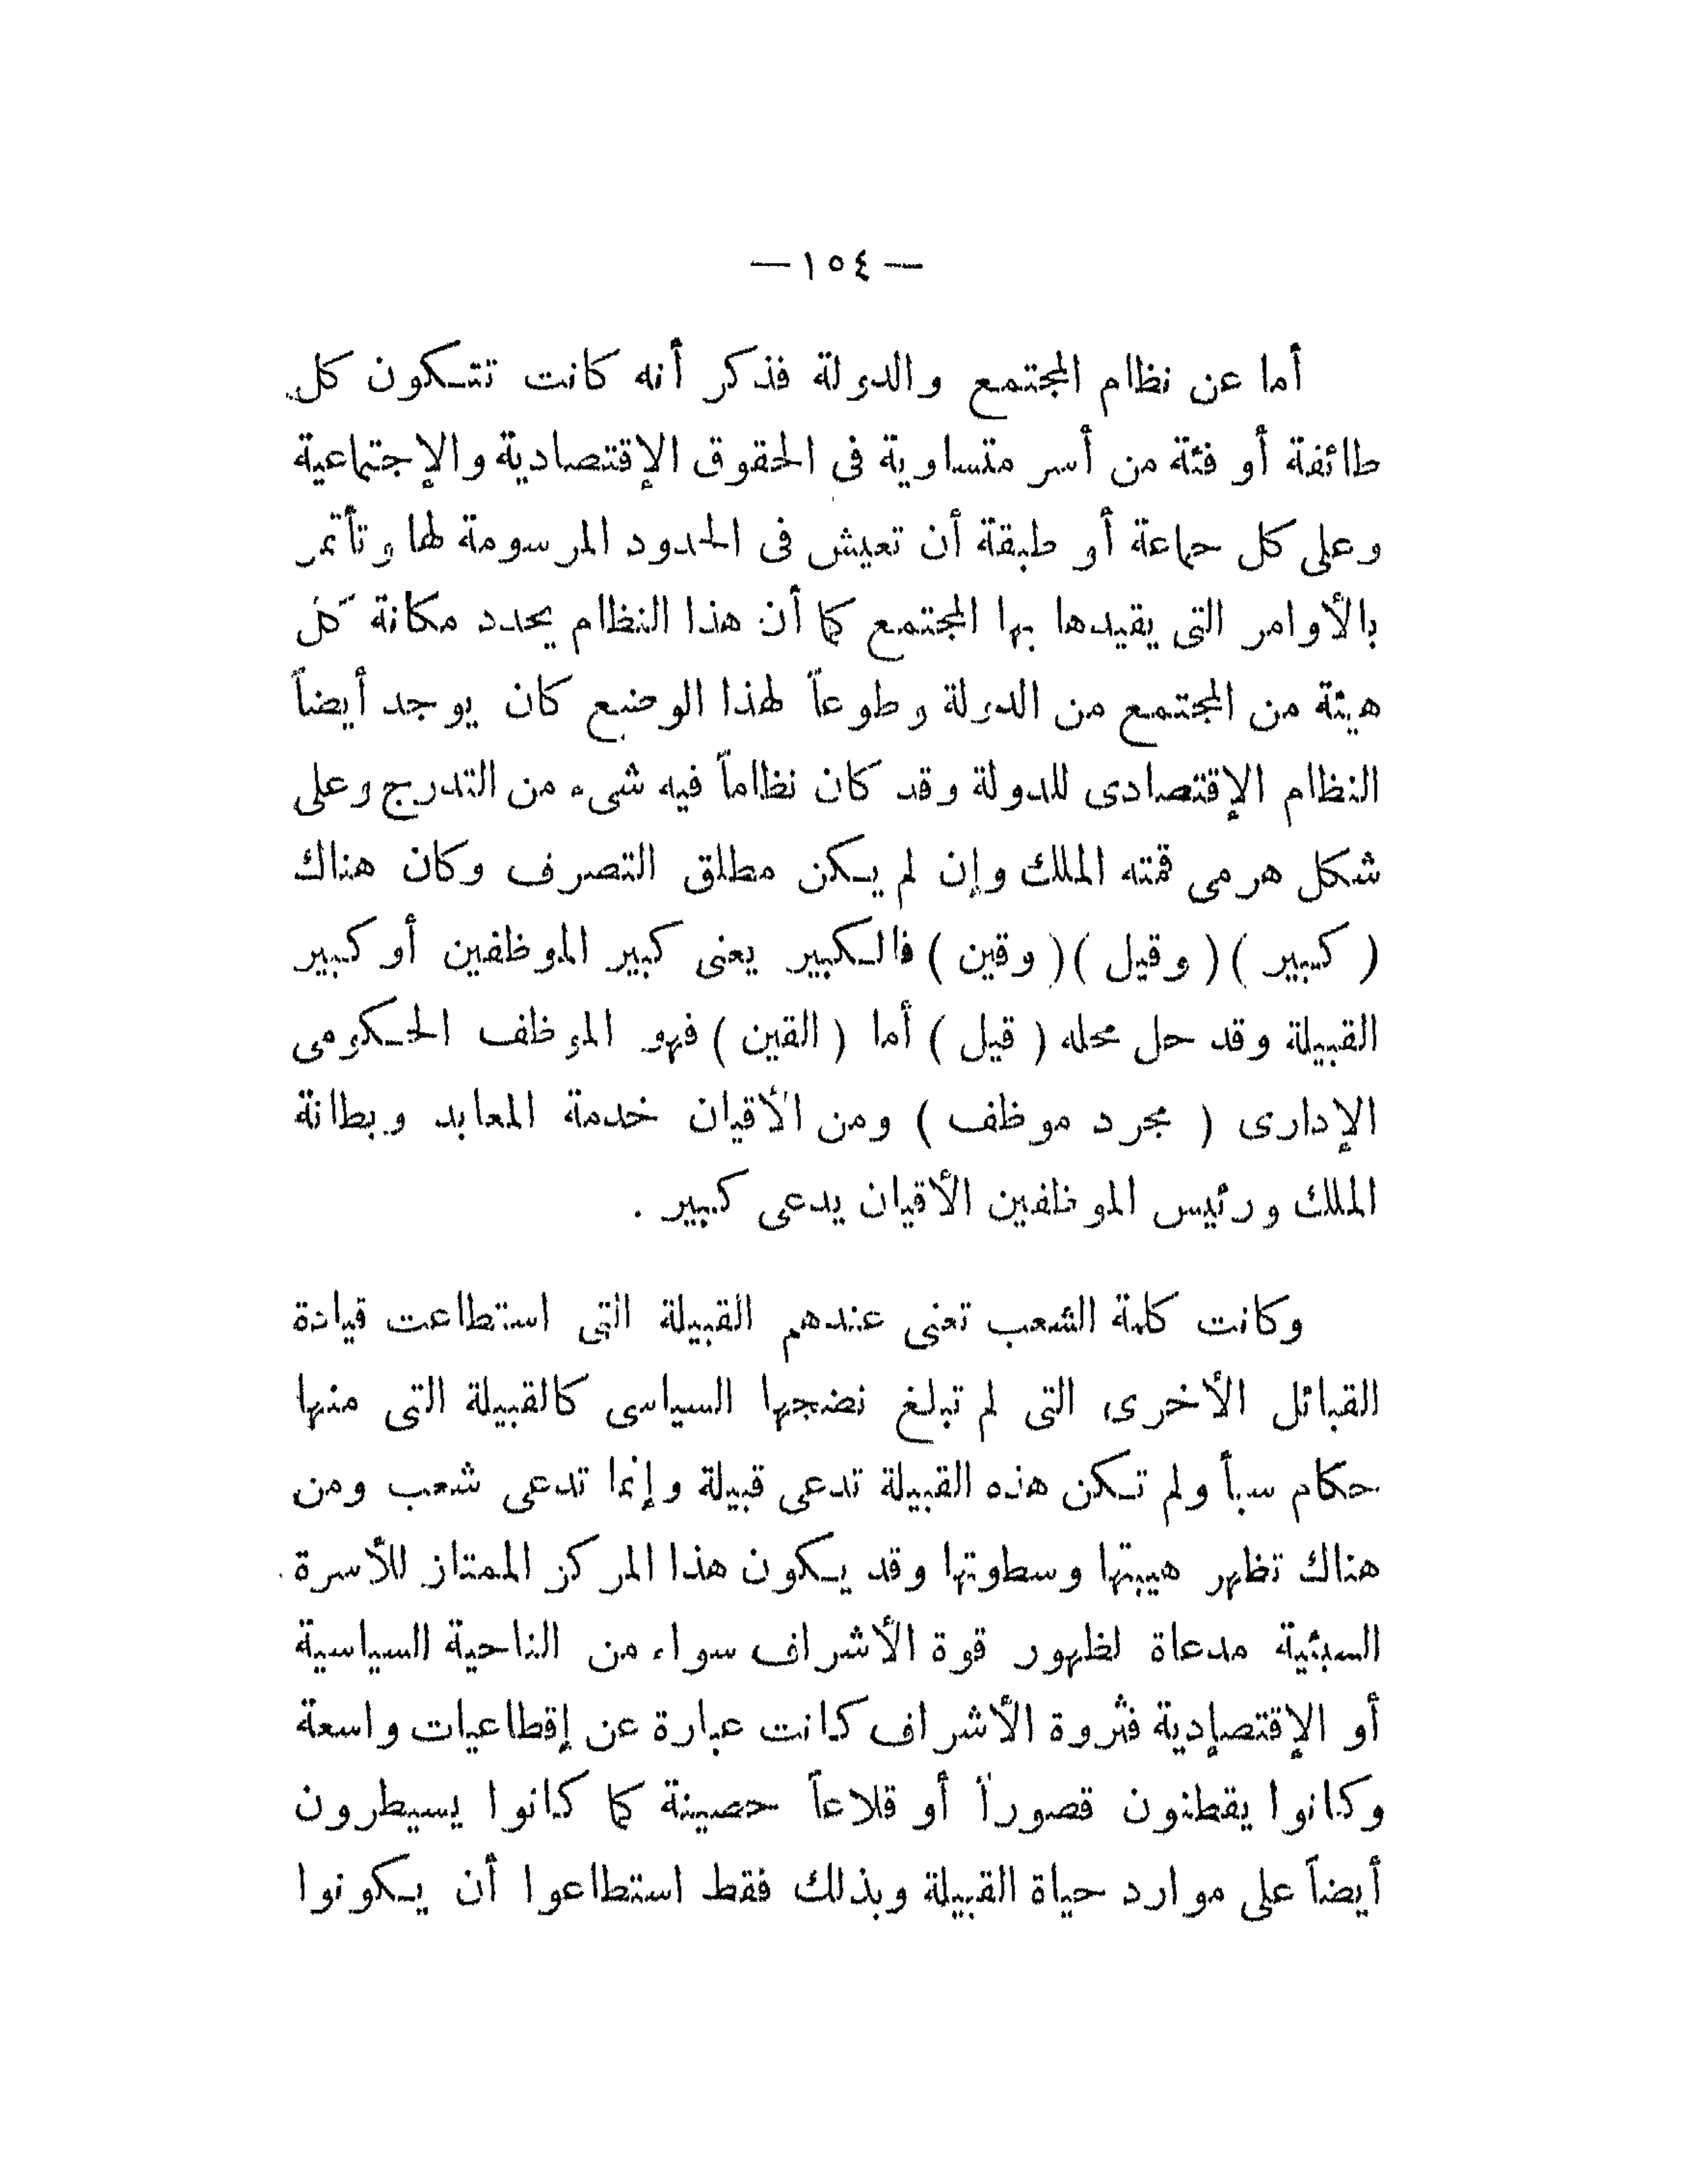 — ١٥٤ —
أما عن نظام المجتمع والدولة فذكر أنه كانت تتكون كل
طائفة أو فئة من أسر متساوية فى الحقوق الإقتصادية والإجتماعية
وعلى كل جماعة أو طبقة أن تعيش فى الحدود المرسومة لها وتأتمر
بالأوامر التى يقيدها بها المجتمع كما أن هذا النظام يحدد مكانة كل
هيئة من المجتمع من الدولة وطوعاً لهذا الوضع كان يوجد أيضاً
النظام الإقتصادى للدولة وقد كان نظاماً فيه شىء من التدرج وعلى
شكل هرمى قمته الملك وإن لم يكن مطلق التصرف وكان هناك
( كبير ) ( وقيل ) ( وقين ) فالكبير يعنى كبير الموظفين أو كبير
القبيلة وقد حل محله ( قيل ) أما ( القين ) فهو الموظف الحكومى
الإدارى ( مجرد موظف ) ومن الأقيان خدمة المعابد وبطانة
الملك ورئيس الموظفين الأقيان يدعى كبير .
وكانت كلمة الشعب تعنى عندهم القبيلة التى استطاعت قيادة
القبائل الأخرى التى لم تبلغ نضجها السياسى كالقبيلة التى منها
حكام سبأ ولم تكن هذه القبيلة تدعى قبيلة وإنما تدعى شعب ومن
هناك تظهر هيبتها وسطوتها وقد يكون هذا المركز الممتاز للأسرة
السبئية مدعاة لظهور قوة الأشراف سواء من الناحية السياسية
أو الإقتصادية فثروة الأشراف كانت عبارة عن إقطاعيات واسعة
وكانوا يقطنون قصوراً أو قلاعاً حصينة كما كانوا يسيطرون
أيضاً على موارد حياة القبيلة وبذلك فقط استطاعوا أن يكونوا